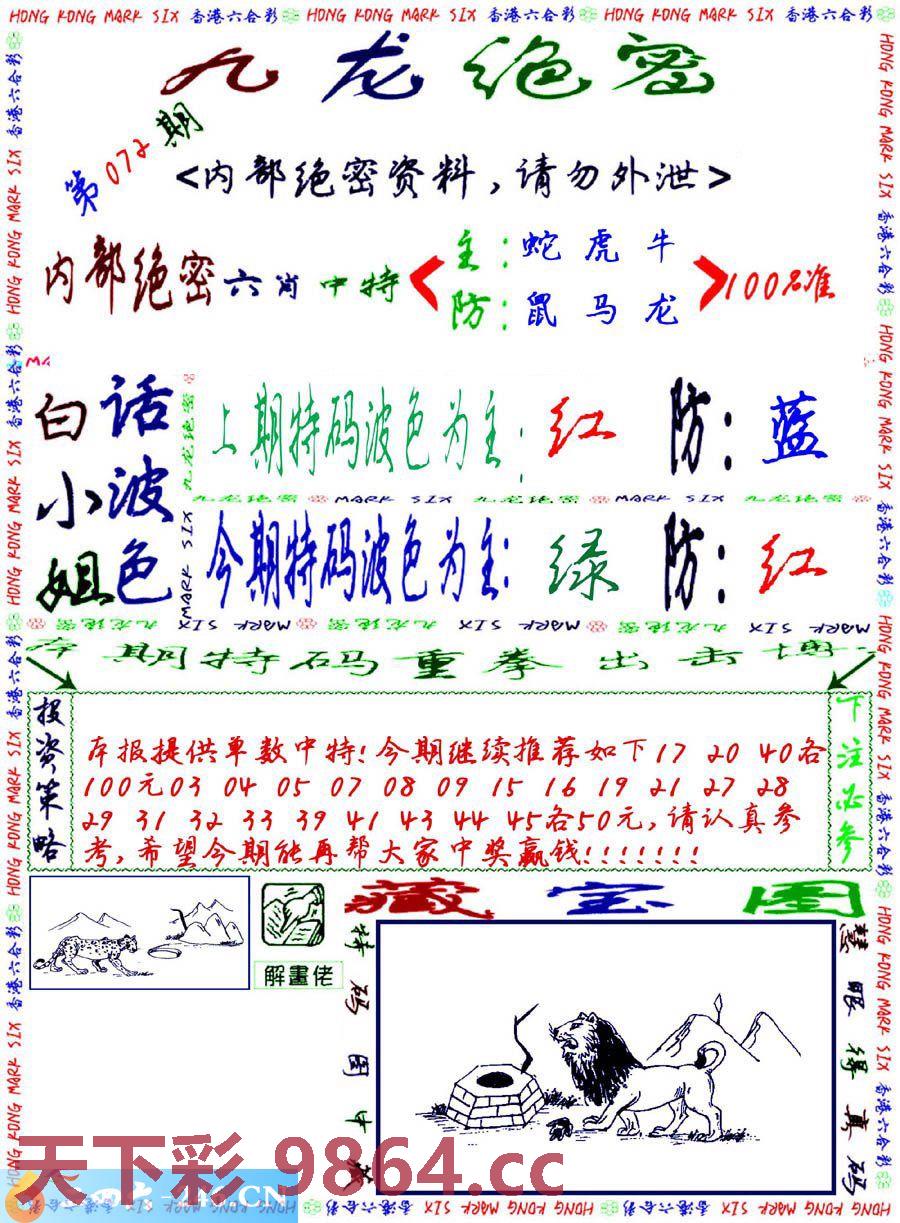 HONG KONG MARK SIX 香港六合彩 HONG KONG MARK SIX 香港六合彩 HONG KONG MARK SIX 香港六合彩
九龙绝密
第072期
<内部绝密资料,请勿外泄>
内部绝密六肖中特
主:蛇虎牛
防:鼠马龙
100%准
白小姐
话波色
上期特码波色为主:红 防:蓝
九龙绝密 MARK SIX 九龙绝密 MARK SIX 九龙绝密
今期特码波色为主:绿 防:红
期特码重拳出击
投资策略
本报提供单数中特!今期继续推荐如下17 20 40各
100元03 04 05 07 08 09 15 16 19 21 27 28
29 31 32 33 39 41 43 44 45各50元,请认真参
考,希望今期能再帮大家中奖赢钱!!!!!!!
下注必参
藏宝图
解畫佬
特码图中
慧眼得真码
天下彩 9864.cc